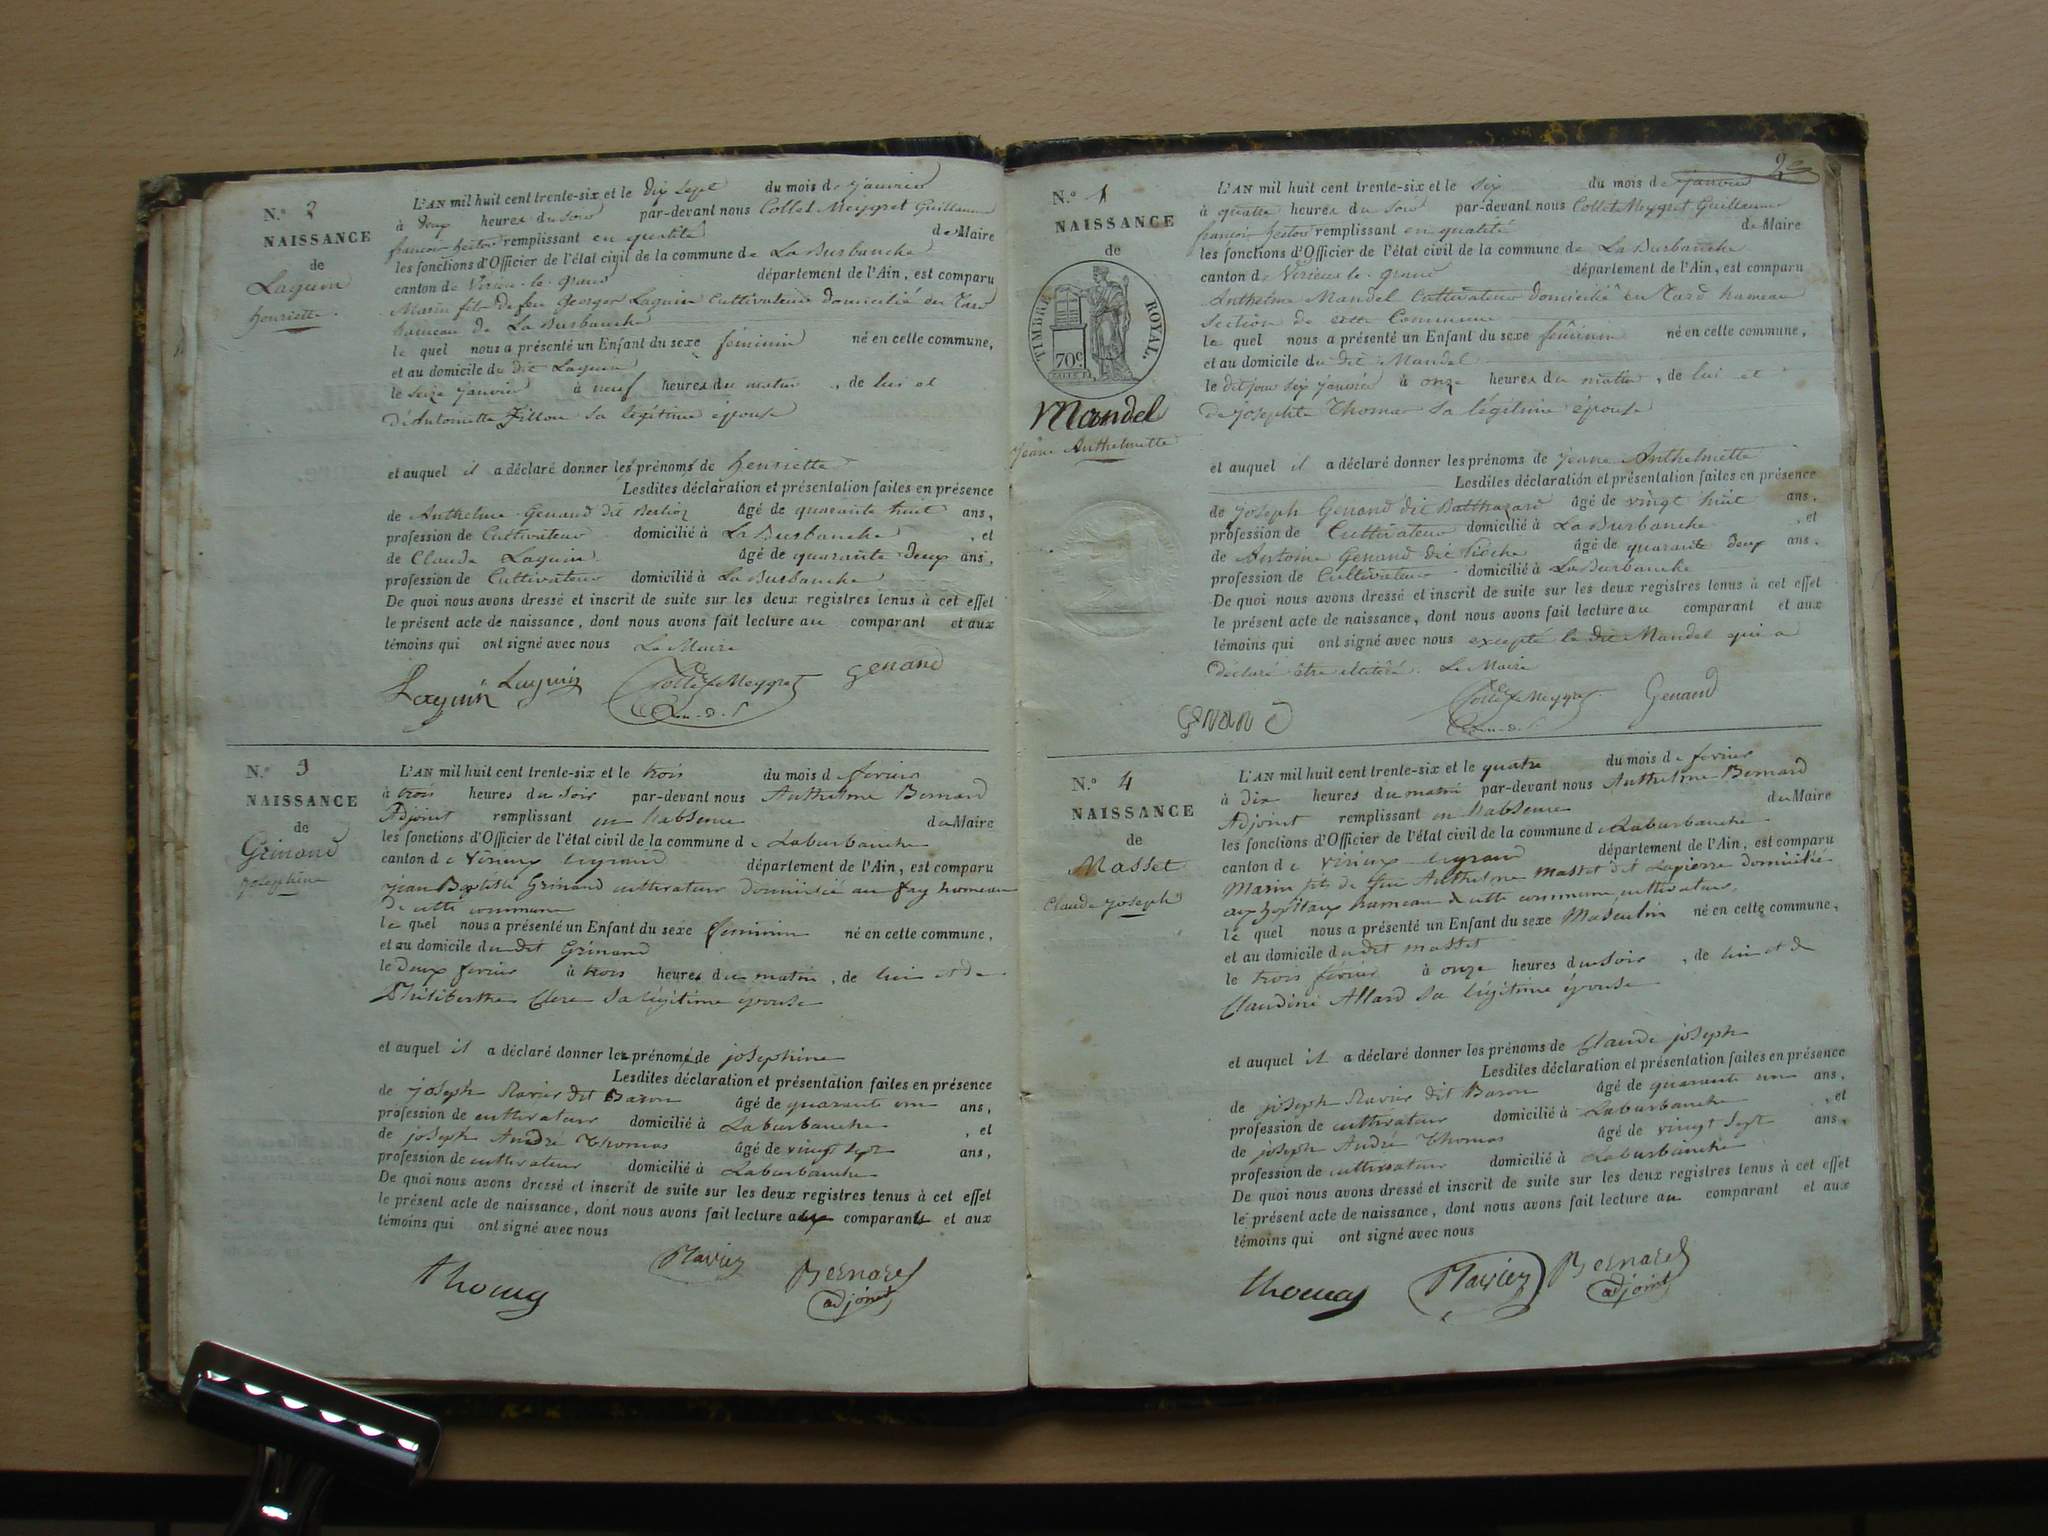 N.° 2
NAISSANCE
de
Laguin
henriette.
L'AN mil huit cent trente-six et le dix sept du mois de janvier
à deux heures du soir par-devant nous Collet Meygret Guillaume
françois hector remplissant en qualité de Maire
les fonctions d'Officier de l'état civil de la commune de La Burbanche
canton de Virieu-le-grand département de l'Ain, est comparu
Marin fils de feu George Laguin Cultivateur domicilié en
hameau de La Burbanche
le quel nous a présenté un Enfant du sexe féminin né en cette commune,
et au domicile du dit Laguin
le seize janvier à neuf heures du matin, de lui et
d'Antoinette Fillon sa légitime épouse
et auquel il a déclaré donner les prénoms de henriette
Lesdites déclaration et présentation faites en présence
de Anthelme Genand dit Berlioz âgé de quarante huit ans,
profession de Cultivateur domicilié à La Burbanche, et
de Claude Laguin âgé de quarante deux ans,
profession de Cultivateur domicilié à La Burbanche
De quoi nous avons dressé et inscrit de suite sur les deux registres tenus à cet effet
le présent acte de naissance, dont nous avons fait lecture au comparant et aux
témoins qui ont signé avec nous Le Maire
Laguin Laguin Collet Meygret Genand
N.° 3
NAISSANCE
de
Grinand
josephine
L'AN mil huit cent trente-six et le trois du mois de fevrier
à trois heures du soir par-devant nous Anthelme Bernard
Adjoint remplissant en labsence du Maire
les fonctions d'Officier de l'état civil de la commune de Laburbanche
canton de Virieux legrand département de l'Ain, est comparu
jean Baptiste Grinand cultivateur domicilié au fay hameau
de cette commune
le quel nous a présenté un Enfant du sexe feminin né en cette commune,
et au domicile du dit Grinand
le deux fevrier à trois heures du matin, de lui et de
Philiberthe Clerc sa légitime épouse
et auquel il a déclaré donner les prénoms de josephine
Lesdites déclaration et présentation faites en présence
de joseph Ravier dit Baron âgé de quarante un ans,
profession de cultivateur domicilié à Laburbanche, et
de joseph André Thomas âgé de vingt sept ans,
profession de cultivateur domicilié à Laburbanche
De quoi nous avons dressé et inscrit de suite sur les deux registres tenus à cet effet
le présent acte de naissance, dont nous avons fait lecture aux comparants et aux
témoins qui ont signé avec nous
thomas Ravier Bernard
adjoint
N.° 1
NAISSANCE
de
TIMBRE ROYAL.
70c
Mandel
jeane Anthelmette
L'AN mil huit cent trente-six et le six du mois de janvier
à quatre heures du soir par-devant nous Collet Meygret Guillaume
françois hector remplissant en qualité de Maire
les fonctions d'Officier de l'état civil de la commune de La Burbanche
canton de Virieu-le-grand département de l'Ain, est comparu
Anthelme Mandel Cultivateur domicilié en Tard hameau
section de cette Commune
le quel nous a présenté un Enfant du sexe féminin né en cette commune,
et au domicile du dit Mandel
le dit jour six janvier à onze heures du matin, de lui et
de josephte Thomas sa légitime épouse
et auquel il a déclaré donner les prénoms de jeane Anthelmette
Lesdites déclaration et présentation faites en présence
de joseph Genand dit Balthazard âgé de vingt huit ans,
profession de Cultivateur domicilié à La Burbanche, et
de Antoine Genand dit âgé de quarante deux ans,
profession de Cultivateur domicilié à La Burbanche
De quoi nous avons dressé et inscrit de suite sur les deux registres tenus à cet effet
le présent acte de naissance, dont nous avons fait lecture au comparant et aux
témoins qui ont signé avec nous excepté le dit Mandel qui a
déclaré être Le Maire
Collet Meygret Genand
Genand
N.° 4
NAISSANCE
de
Masset
Claude joseph
L'AN mil huit cent trente-six et le quatre du mois de fevrier
à dix heures du matin par-devant nous Anthelme Bernard
Adjoint remplissant en labsence du Maire
les fonctions d'Officier de l'état civil de la commune de Laburbanche
canton de Virieux legrand département de l'Ain, est comparu
Marin fils de feu Anthelme Masset dit Lapierre domicilié
aux hopitaux hameau de cette commune, cultivateur,
le quel nous a présenté un Enfant du sexe Masculin né en cette commune,
et au domicile du dit masset
le trois février à onze heures du soir, de lui et de
Claudine Allard sa légitime épouse
et auquel il a déclaré donner les prénoms de Claude joseph
Lesdites déclaration et présentation faites en présence
de joseph Ravier dit Baron âgé de quarante un ans,
profession de cultivateur domicilié à Laburbanche, et
de joseph André Thomas âgé de vingt sept ans,
profession de cultivateur domicilié à Laburbanche
De quoi nous avons dressé et inscrit de suite sur les deux registres tenus à cet effet
le présent acte de naissance, dont nous avons fait lecture au comparant et aux
témoins qui ont signé avec nous
thomas Ravier Bernard
adjoint